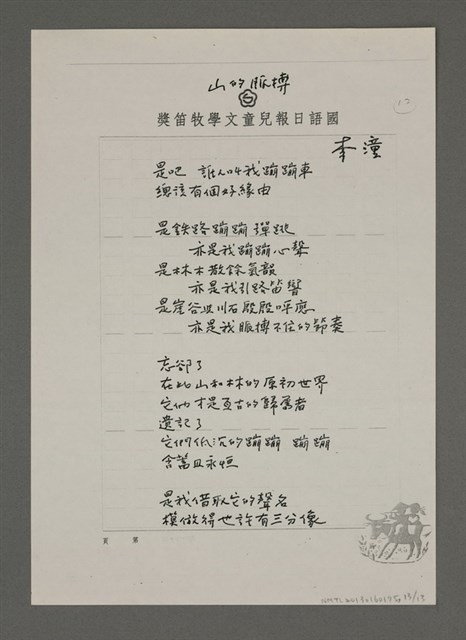 山的脈搏
12
獎笛牧學文童兒報日語國
李潼
是吧 誰人叫我蹦蹦車
總該有個好緣由
是鉄路蹦蹦彈跳
亦是我蹦蹦心聲
是林木散餘氣韻
亦是我引路笛響
是崖谷與川石殷殷呼應
亦是我脈搏不住的節奏
忘卻了
在此山和林的原初世界
它們才是亘古的歸屬者
遺記了
它們低沉的蹦蹦 蹦蹦
含蓄且永恒
是我借取它的聲名
模做得也許有三分像
頁 第